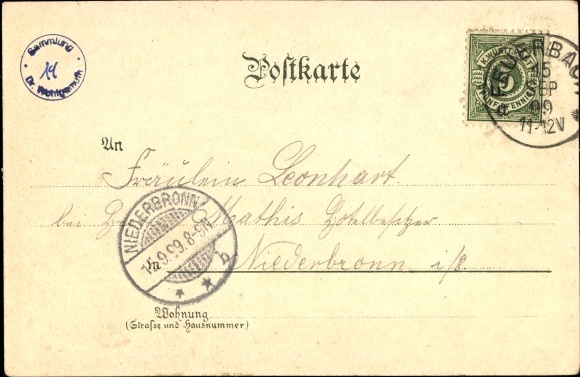 Sammlung
14
Dr. Wohlgemuth
Postkarte
K. WÜRTTEMB. POST
5
FÜNF PFENNIG
FEUERBACH
15
SEP
99
11-12V
An
Fräulein Leonhart.
bei Mathis Hotelbesitzer
in Niederbronn i/E.
NIEDERBRONN
15.9.99.8-9N.
Wohnung
(Strasse und Hausnummer)